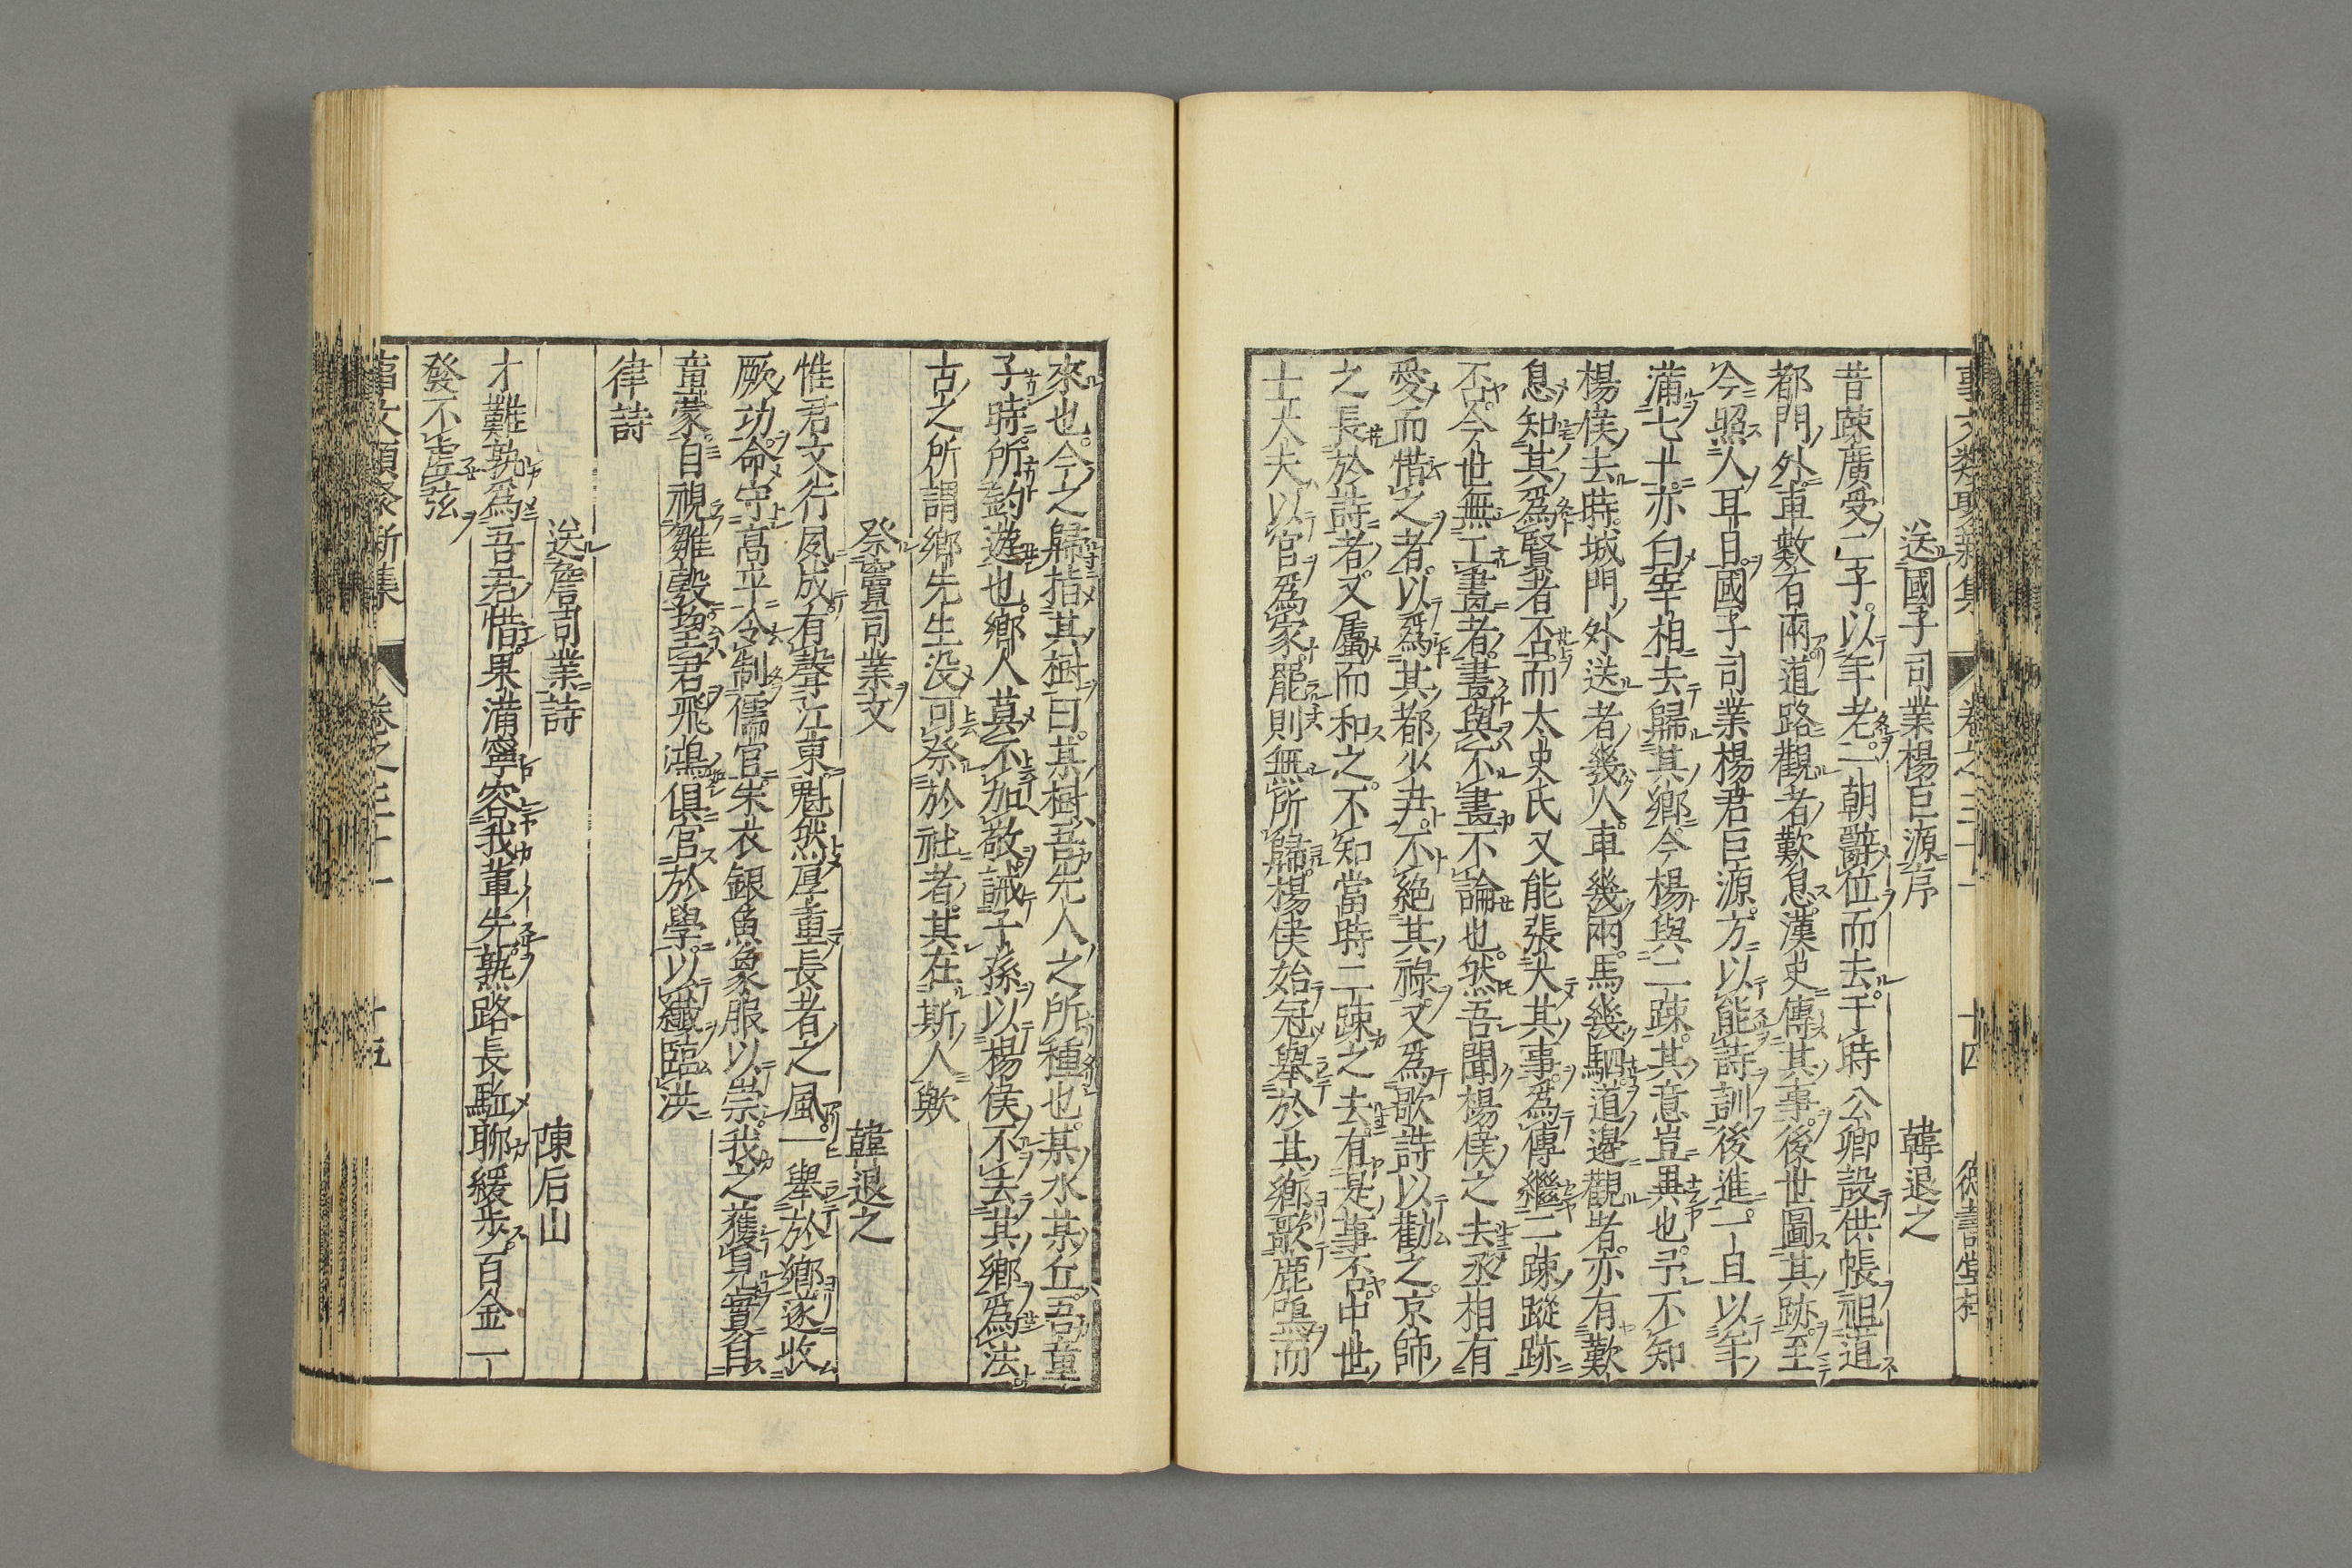 事文類聚新集 卷之三十一 十四 德壽堂梓
送國子司業楊巨源序 韓退之
昔疎廣受二子以年老一朝辭位而去于時公卿設供帳祖道
都門外車數百兩道路觀者歎息漢史傳其事後世圖其跡至
今照人耳目國子司業楊君巨源方以能詩訓後進一旦以年
滿七十亦白宰相去歸其鄉今楊與二疎其意豈異也予不知
楊侯去時城門外送者幾人車幾兩馬幾駟道邊觀者亦有歎
息知其爲賢者否而太史氏又能張大其事爲傳繼二疎蹤跡
否今世無工畫者畫與不畫不論也然吾聞楊侯之去丞相有
愛而惜之者以爲其都少尹不絕其祿又爲歌詩以勸之京師
之長於詩者又屬而和之不知當時二疎之去有是事否中世
士大夫以官爲家罷則無所歸楊侯始冠舉於其鄉歌鹿鳴而
來也今之歸指其樹曰某樹吾先人之所種也某水某丘吾童
子時所釣遊也鄉人莫不加敬誡子孫以楊侯不去其鄉爲法
古之所謂鄉先生没可祭於社者其在斯人歟
祭竇司業文 韓退之
惟君文行夙成有聲江東魁然厚重長者之風一舉於鄉遂收
厥功命守高平令制儒官朱衣銀魚象服以崇我之獲見實自
童蒙自視雛鷇望君飛鴻俱官於學以纖臨洪
律詩
送詹司業詩 陳后山
才難孰爲吾君惜果滿寧容我輩先熟路長驅聊緩步百金一
發不虛弦
事文類聚新集 卷之三十一 十五